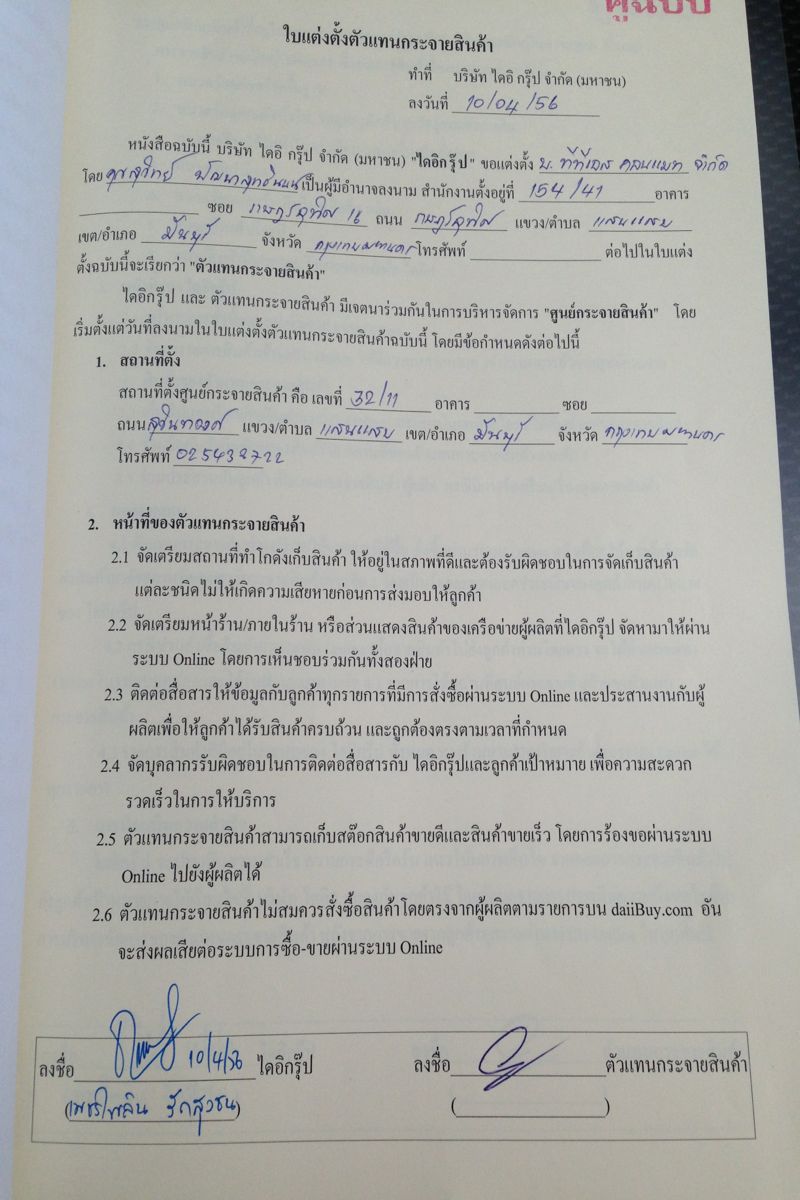 คู่ฉบับ
ใบแต่งตั้งตัวแทนกระจายสินค้า
ทำที่ บริษัท ไดอิ กรุ๊ป จำกัด (มหาชน)
ลงวันที่ 10/04/56
หนังสือฉบับนี้ บริษัท ไดอิ กรุ๊ป จำกัด (มหาชน) "ไดอิกรุ๊ป" ขอแต่งตั้ง บ. ทีทีเอส คอนแมท จำกัด
โดย คุณสุวิทย์ เป็นผู้มีอำนาจลงนาม สำนักงานตั้งอยู่ที่ 154/41 อาคาร
ซอย ราษฎร์อุทิศ 16 ถนน ราษฎร์อุทิศ แขวง/ตำบล แสนแสบ
เขต/อำเภอ มีนบุรี จังหวัด กรุงเทพมหานคร โทรศัพท์ ต่อไปในใบแต่ง
ตั้งฉบับนี้จะเรียกว่า "ตัวแทนกระจายสินค้า"
ไดอิกรุ๊ป และ ตัวแทนกระจายสินค้า มีเจตนาร่วมกันในการบริหารจัดการ "ศูนย์กระจายสินค้า" โดย
เริ่มตั้งแต่วันที่ลงนามในใบแต่งตั้งตัวแทนกระจายสินค้าฉบับนี้ โดยมีข้อกำหนดดังต่อไปนี้
1. สถานที่ตั้ง
สถานที่ตั้งศูนย์กระจายสินค้า คือ เลขที่ 32/11 อาคาร ซอย
ถนน สุวินทวงศ์ แขวง/ตำบล แสนแสบ เขต/อำเภอ มีนบุรี จังหวัด กรุงเทพมหานคร
โทรศัพท์ 025432722
2. หน้าที่ของตัวแทนกระจายสินค้า
2.1 จัดเตรียมสถานที่ทำโกดังเก็บสินค้า ให้อยู่ในสภาพที่ดีและต้องรับผิดชอบในการจัดเก็บสินค้า
แต่ละชนิดไม่ให้เกิดความเสียหายก่อนการส่งมอบให้ลูกค้า
2.2 จัดเตรียมหน้าร้าน/ภายในร้าน หรือส่วนแสดงสินค้าของเครือข่ายผู้ผลิตที่ไดอิกรุ๊ป จัดหามาให้ผ่าน
ระบบ Online โดยการเห็นชอบร่วมกันทั้งสองฝ่าย
2.3 ติดต่อสื่อสารให้ข้อมูลกับลูกค้าทุกรายการที่มีการสั่งซื้อผ่านระบบ Online และประสานงานกับผู้
ผลิตเพื่อให้ลูกค้าได้รับสินค้าครบถ้วน และถูกต้องตรงตามเวลาที่กำหนด
2.4 จัดบุคลากรรับผิดชอบในการติดต่อสื่อสารกับ ไดอิกรุ๊ปและลูกค้าเป้าหมาาย เพื่อความสะดวก
รวดเร็วในการให้บริการ
2.5 ตัวแทนกระจายสินค้าสามารถเก็บสต๊อกสินค้าขายดีและสินค้าขายเร็ว โดยการร้องขอผ่านระบบ
Online ไปยังผู้ผลิตได้
2.6 ตัวแทนกระจายสินค้าไม่สมควรสั่งซื้อสินค้าโดยตรงจากผู้ผลิตตามรายการบน daiiBuy.com อัน
จะส่งผลเสียต่อระบบการซื้อ-ขายผ่านระบบ Online
ลงชื่อ 10/4/56 ไดอิกรุ๊ป ลงชื่อ ตัวแทนกระจายสินค้า
(เพชรไพลิน รักสุวชน) ( )